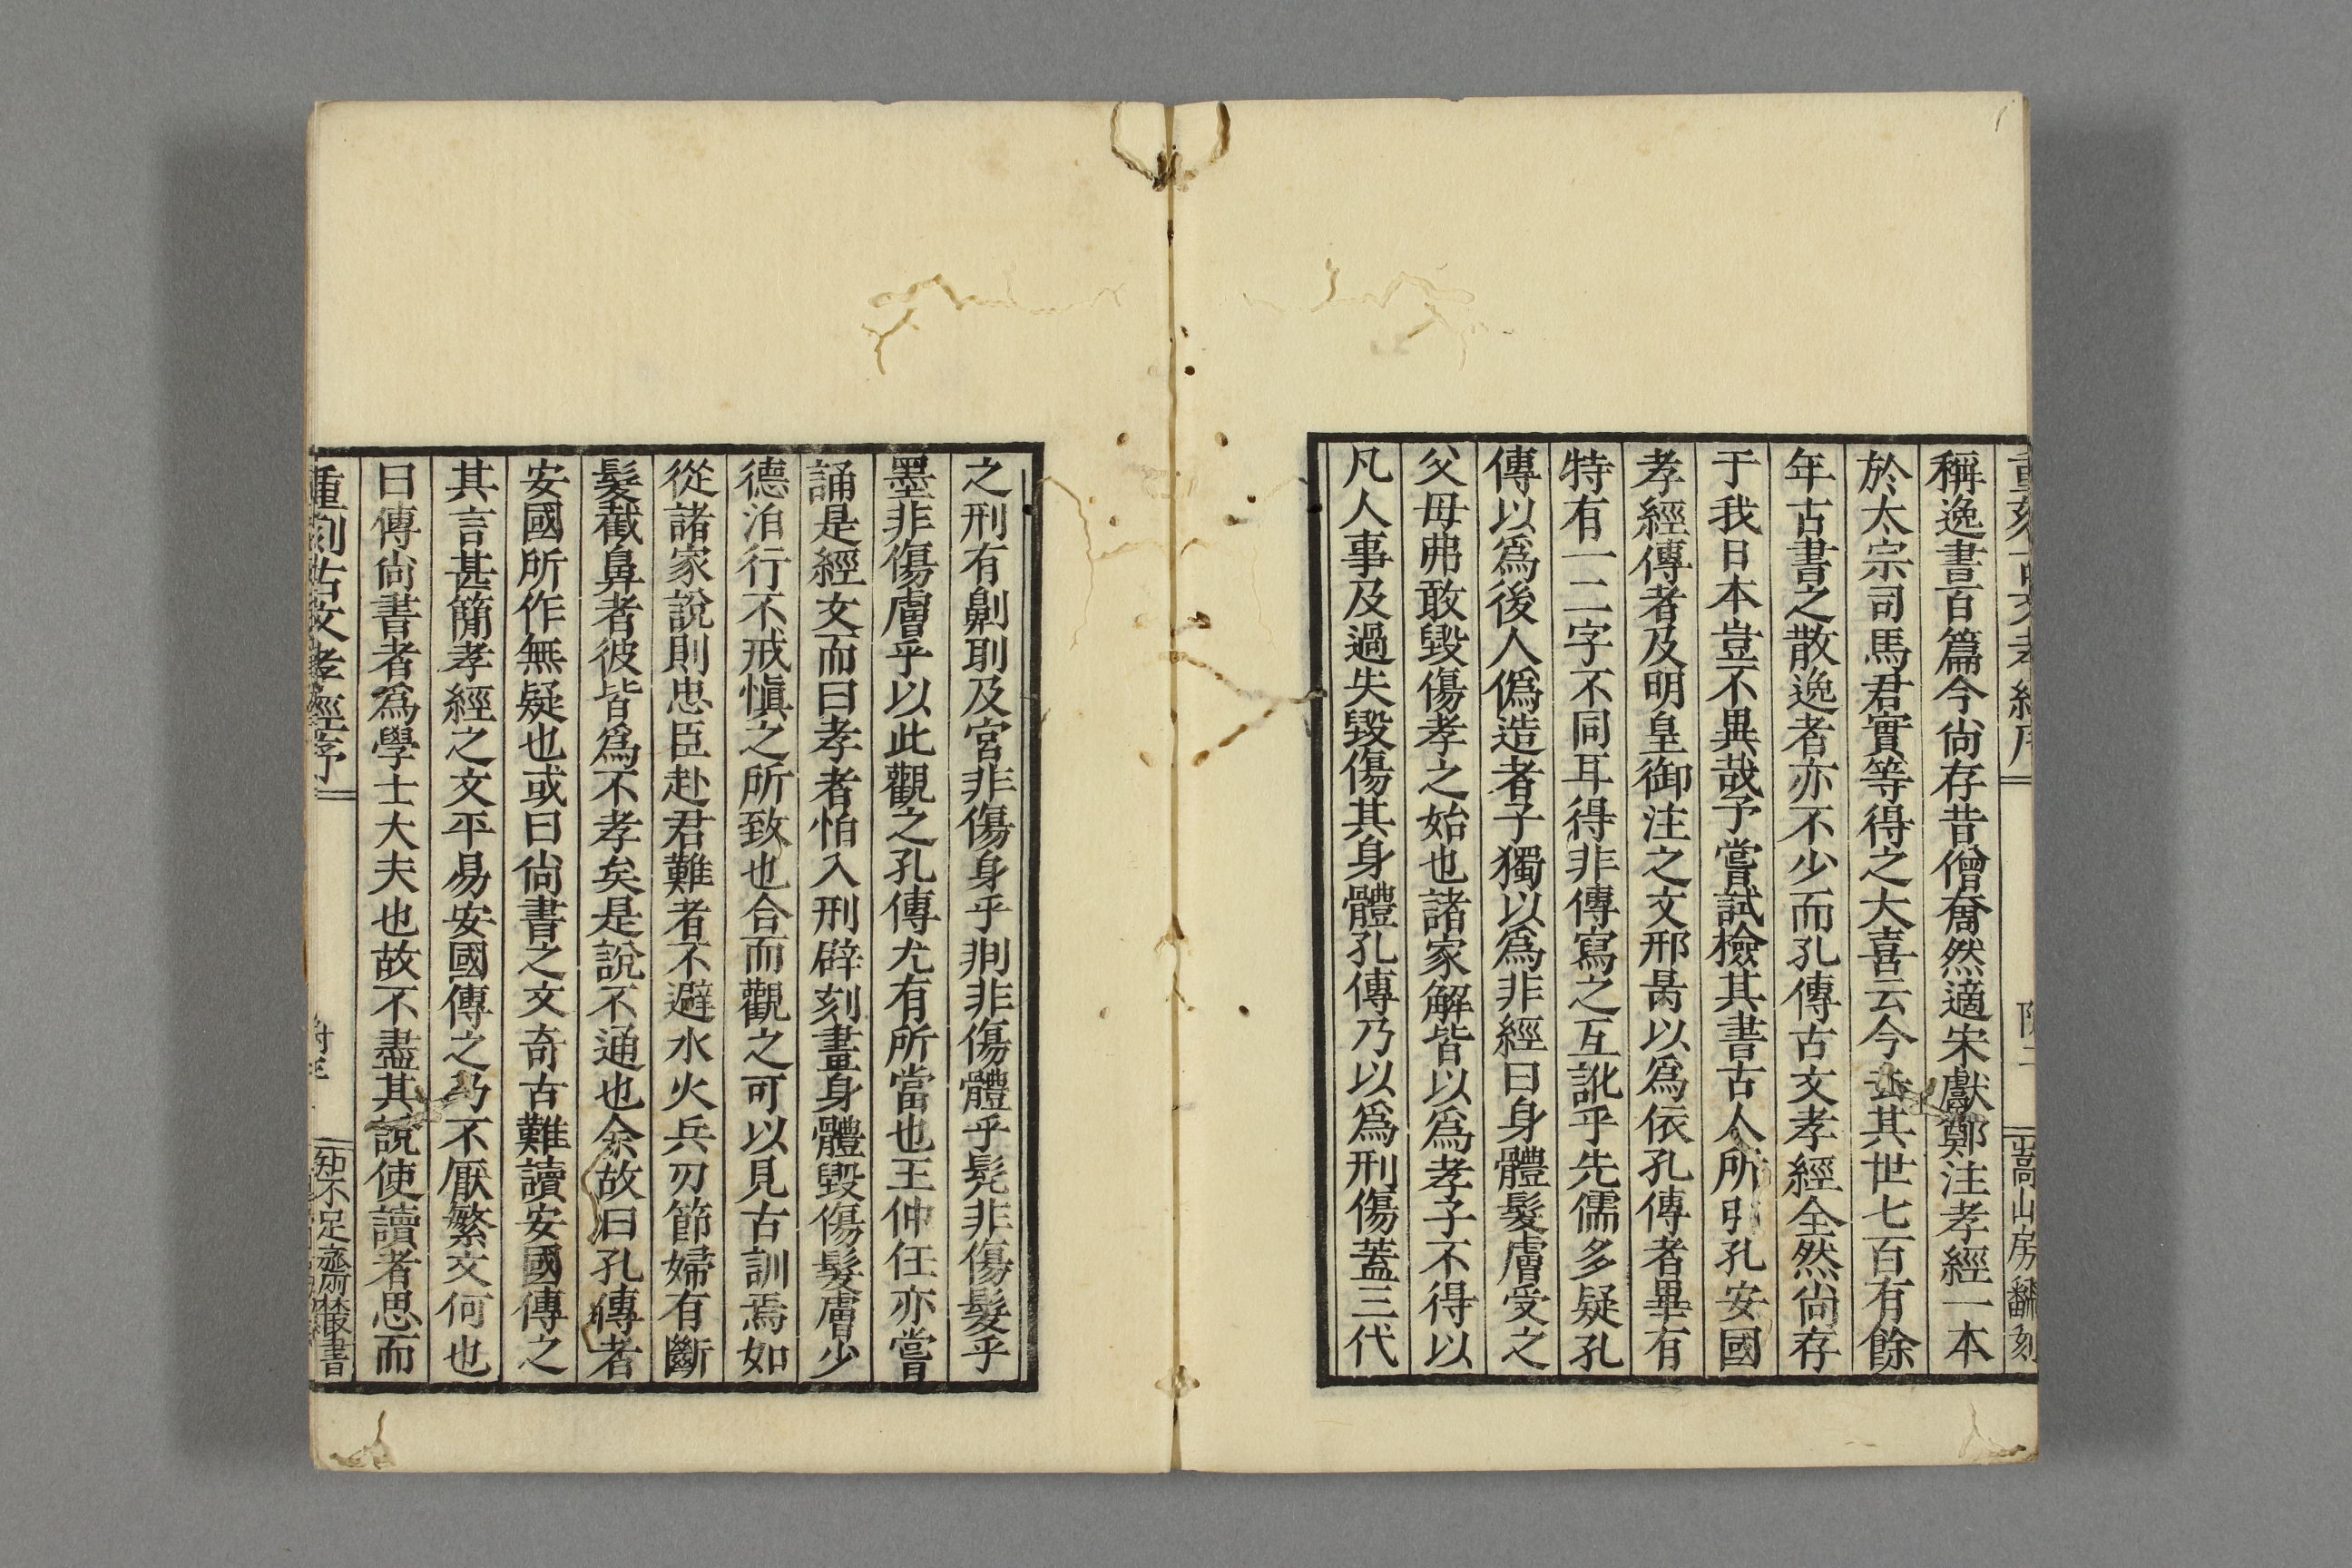 重刻古文孝經序
嵩山房翻刻
稱逸書百篇今尙存昔僧奝然適宋獻鄭注孝經一本
於太宗司馬君實等得之大喜云今去其世七百有餘
年古書之散逸者亦不少而孔傳古文孝經全然尙存
于我日本豈不異哉予嘗試檢其書古人所引孔安國
孝經傳者及明皇御注之文邢昺以爲依孔傳者畢有
特有一二字不同耳得非傳寫之互訛乎先儒多疑孔
傳以爲後人僞造者子獨以爲非經曰身體髮膚受之
父母弗敢毀傷孝之始也諸家解皆以爲孝子不得以
凡人事及過失毀傷其身體孔傳乃以爲刑傷蓋三代
之刑有劓刵及宮非傷身乎剕非傷體乎髡非傷髮乎
墨非傷膚乎以此觀之孔傳尤有所當也王仲任亦嘗
誦是經文而曰孝者怕入刑辟刻畫身體毀傷髮膚少
德泊行不戒愼之所致也合而觀之可以見古訓焉如
從諸家說則忠臣赴君難者不避水火兵刃節婦有斷
髮截鼻者彼皆爲不孝矣是說不通也余故曰孔傳者
安國所作無疑也或曰尙書之文奇古難讀安國傳之
其言甚簡孝經之文平易安國傳之乃不厭繁文何也
曰傳尙書者爲學士大夫也故不盡其說使讀者思而
重刻古文孝經序
知不足齋叢書